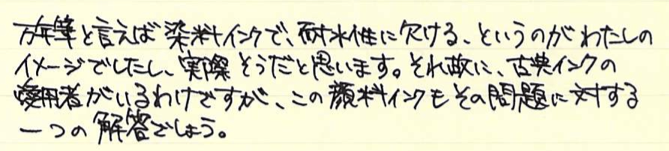 万年筆と言えば染料インクで、耐水性に欠ける、というのがわたしの
イメージでしたし、実際そうだと思います。それ故に、古典インクの
愛用者がいるわけですが、この顔料インクもその問題に対する
一つの解答でしょう。